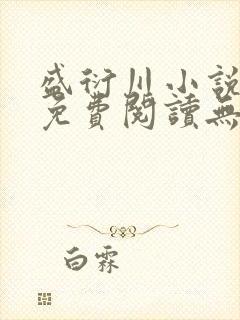 盛衍川小說
免費閱讀無
白霖